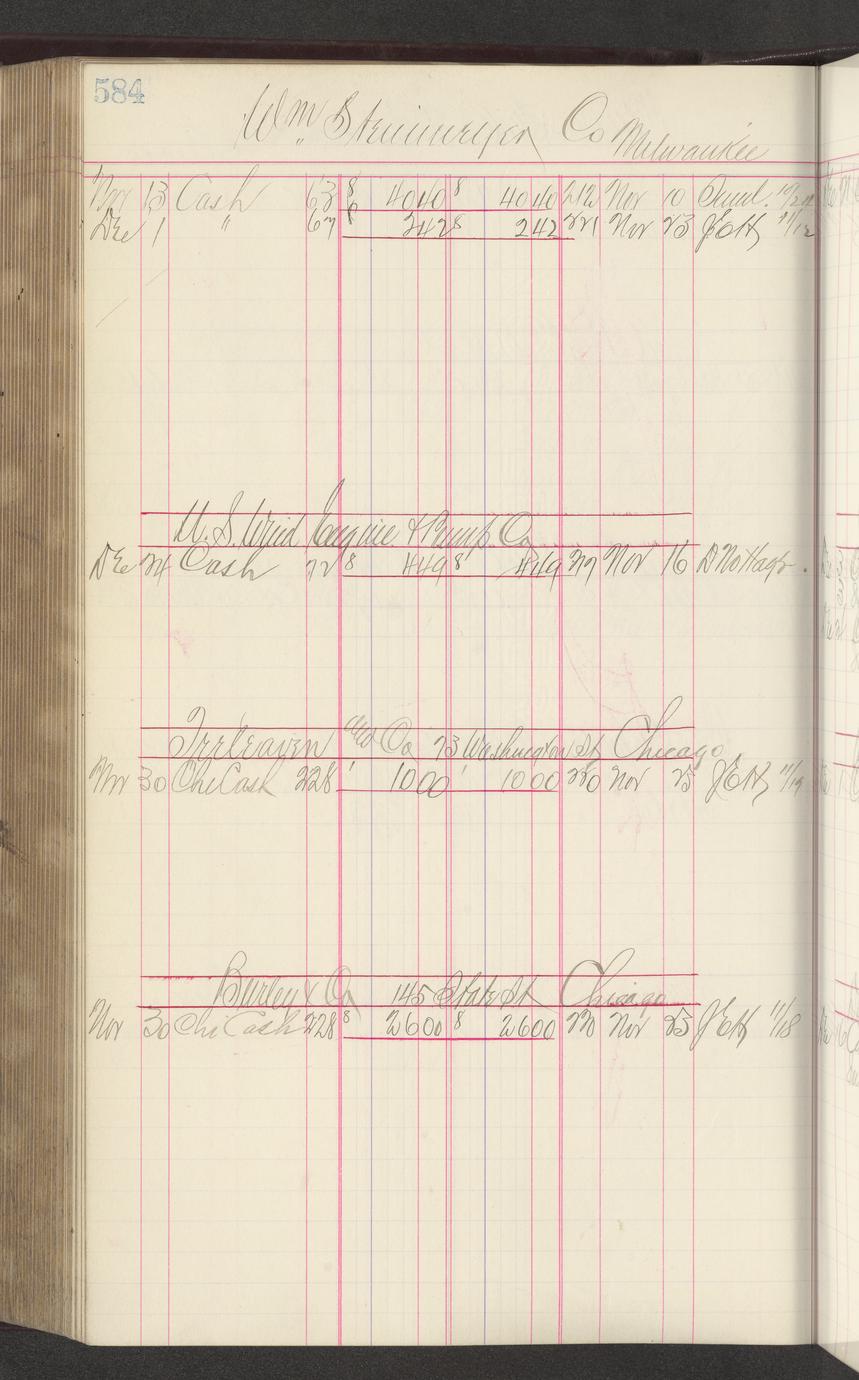 584
Wm Steinmeyer Co Milwaukee
Nov 13 Cash 63 8 4040 8 4040 212 Nov 10
Dec 1 " 67 8 242 8 242 221 Nov 23 JEH 11/12
U. S. Wind Engine & Pump Co
Dec 24 Cash 72 8 449 8 449 Nov 16
Treleaven Co 73 Washington St Chicago
Nov 30 Chi Cash 228 1 1000 1 1000 220 Nov 25 JEH 11/19
Burley & Co 145 State St Chicago
Nov 30 Chi Cash 228 8 2600 8 2600 220 Nov 23 JEH 11/18